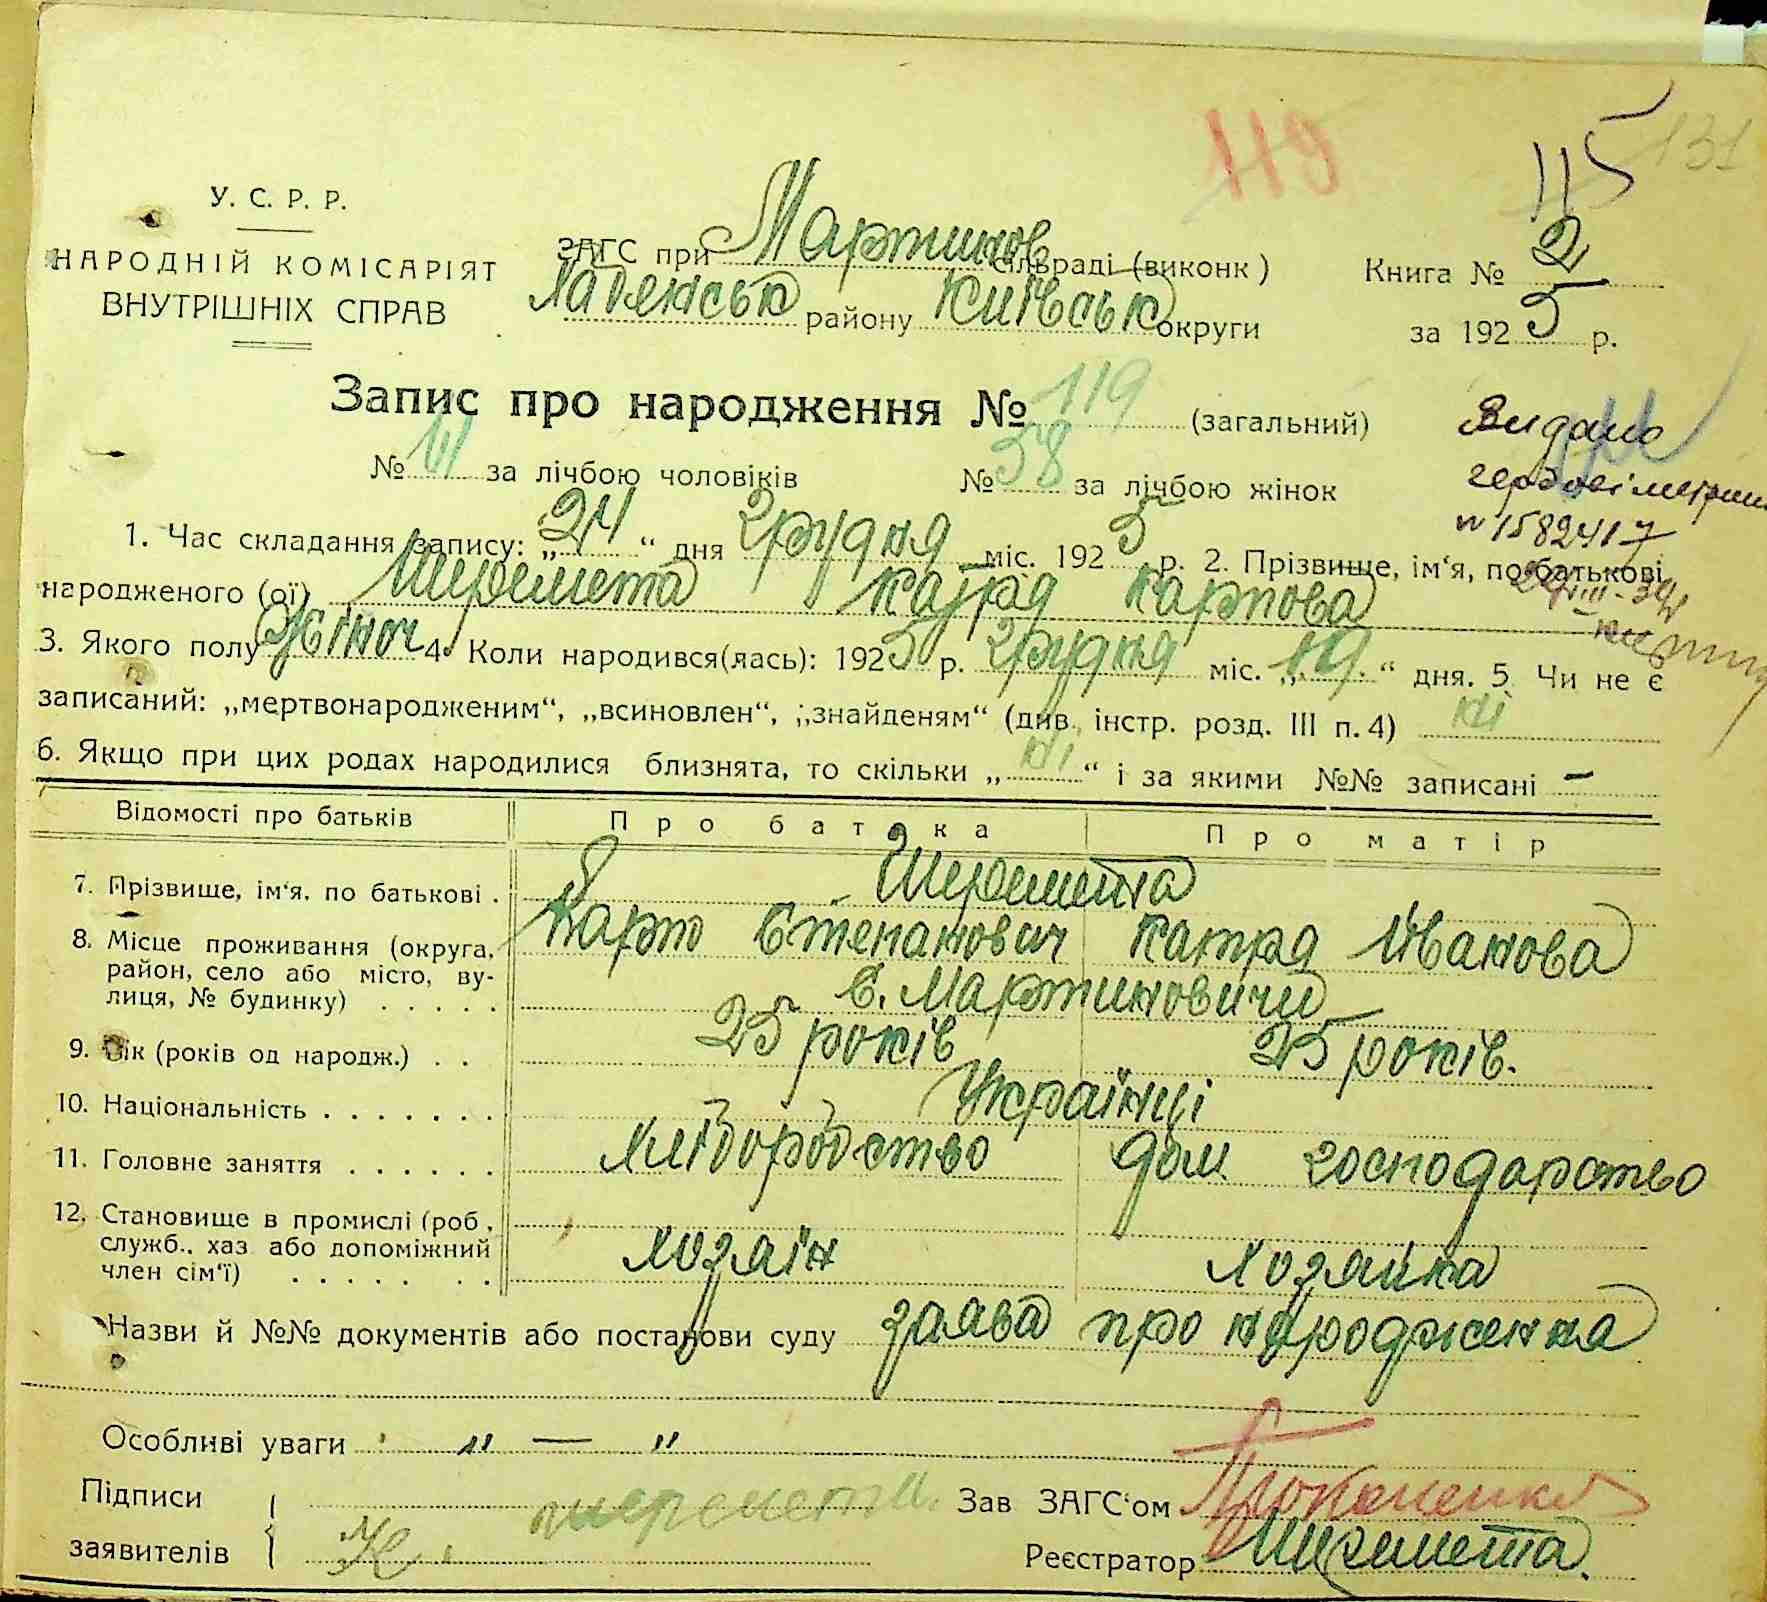 119
115
131
У. С. Р. Р.
НАРОДНІЙ КОМІСАРІЯТ
ВНУТРІШНІХ СПРАВ
ЗАГС при Мартинов сільраді (виконк)
району Київськ округи
Книга № 2
за 1925 р.
Запис про народження № 119 (загальний)
№ за лічбою чоловіків № 58 за лічбою жінок
Видано
№ 1582417
1. Час складання запису: „24“ дня грудня міс. 1925 р. 2. Прізвище, ім‘я, по батькові
народженого (ої) Шеремета Катря Карпова
3. Якого полу жіноч 4. Коли народився(лась): 1925 р. грудня міс. „19.“ дня. 5. Чи не є
записаний: „мертвонародженим“, „всиновлен“, „знайденям“ (див. інстр. розд. III п. 4) ні
6. Якщо при цих родах народилися близнята, то скільки „ні“ і за якими №№ записані —
Відомості про батьків Про батька Про матір
7. Прізвище, ім‘я, по батькові . Шеремета
Карпо Степанович Катря Іванова
8. Місце проживання (округа,
район, село або місто, ву-
лиця, № будинку) . . . . . с. Мартиновичи
9. Вік (років од народж.) . . 25 років 25 років.
10. Національність . . . . . . . Українці
11. Головне заняття . . . . . . хліборобство дом. господарство
12. Становище в промислі (роб.,
служб., хаз. або допоміжний
член сім‘ї) . . . . . . . хозяїн хозяйка
Назви й №№ документів або постанови суду заява про народження
Особливі уваги „ — „
Підписи
заявителів К. шеремета.
Зав ЗАГС‘ом
Реєстратор Шеремета.